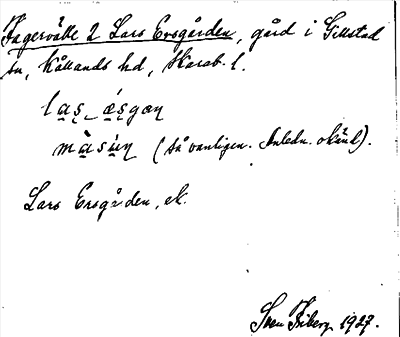 Fägervälle 2 Lars Ersgården, gård i Gillstad
sn, Kållands hd, Skarab. l.
las_æsgan
màsún (så vanligen. Anledn. okänd).
Lars Ersgården, ek.
Sven Friberg 1927.